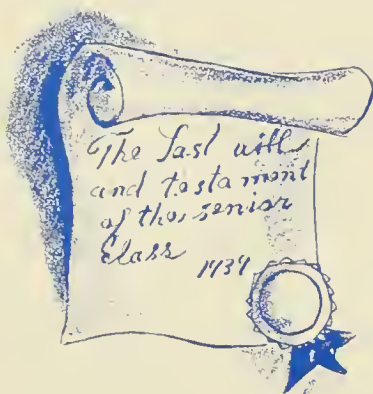 The Last will
and testament
of the senior
Class
1939